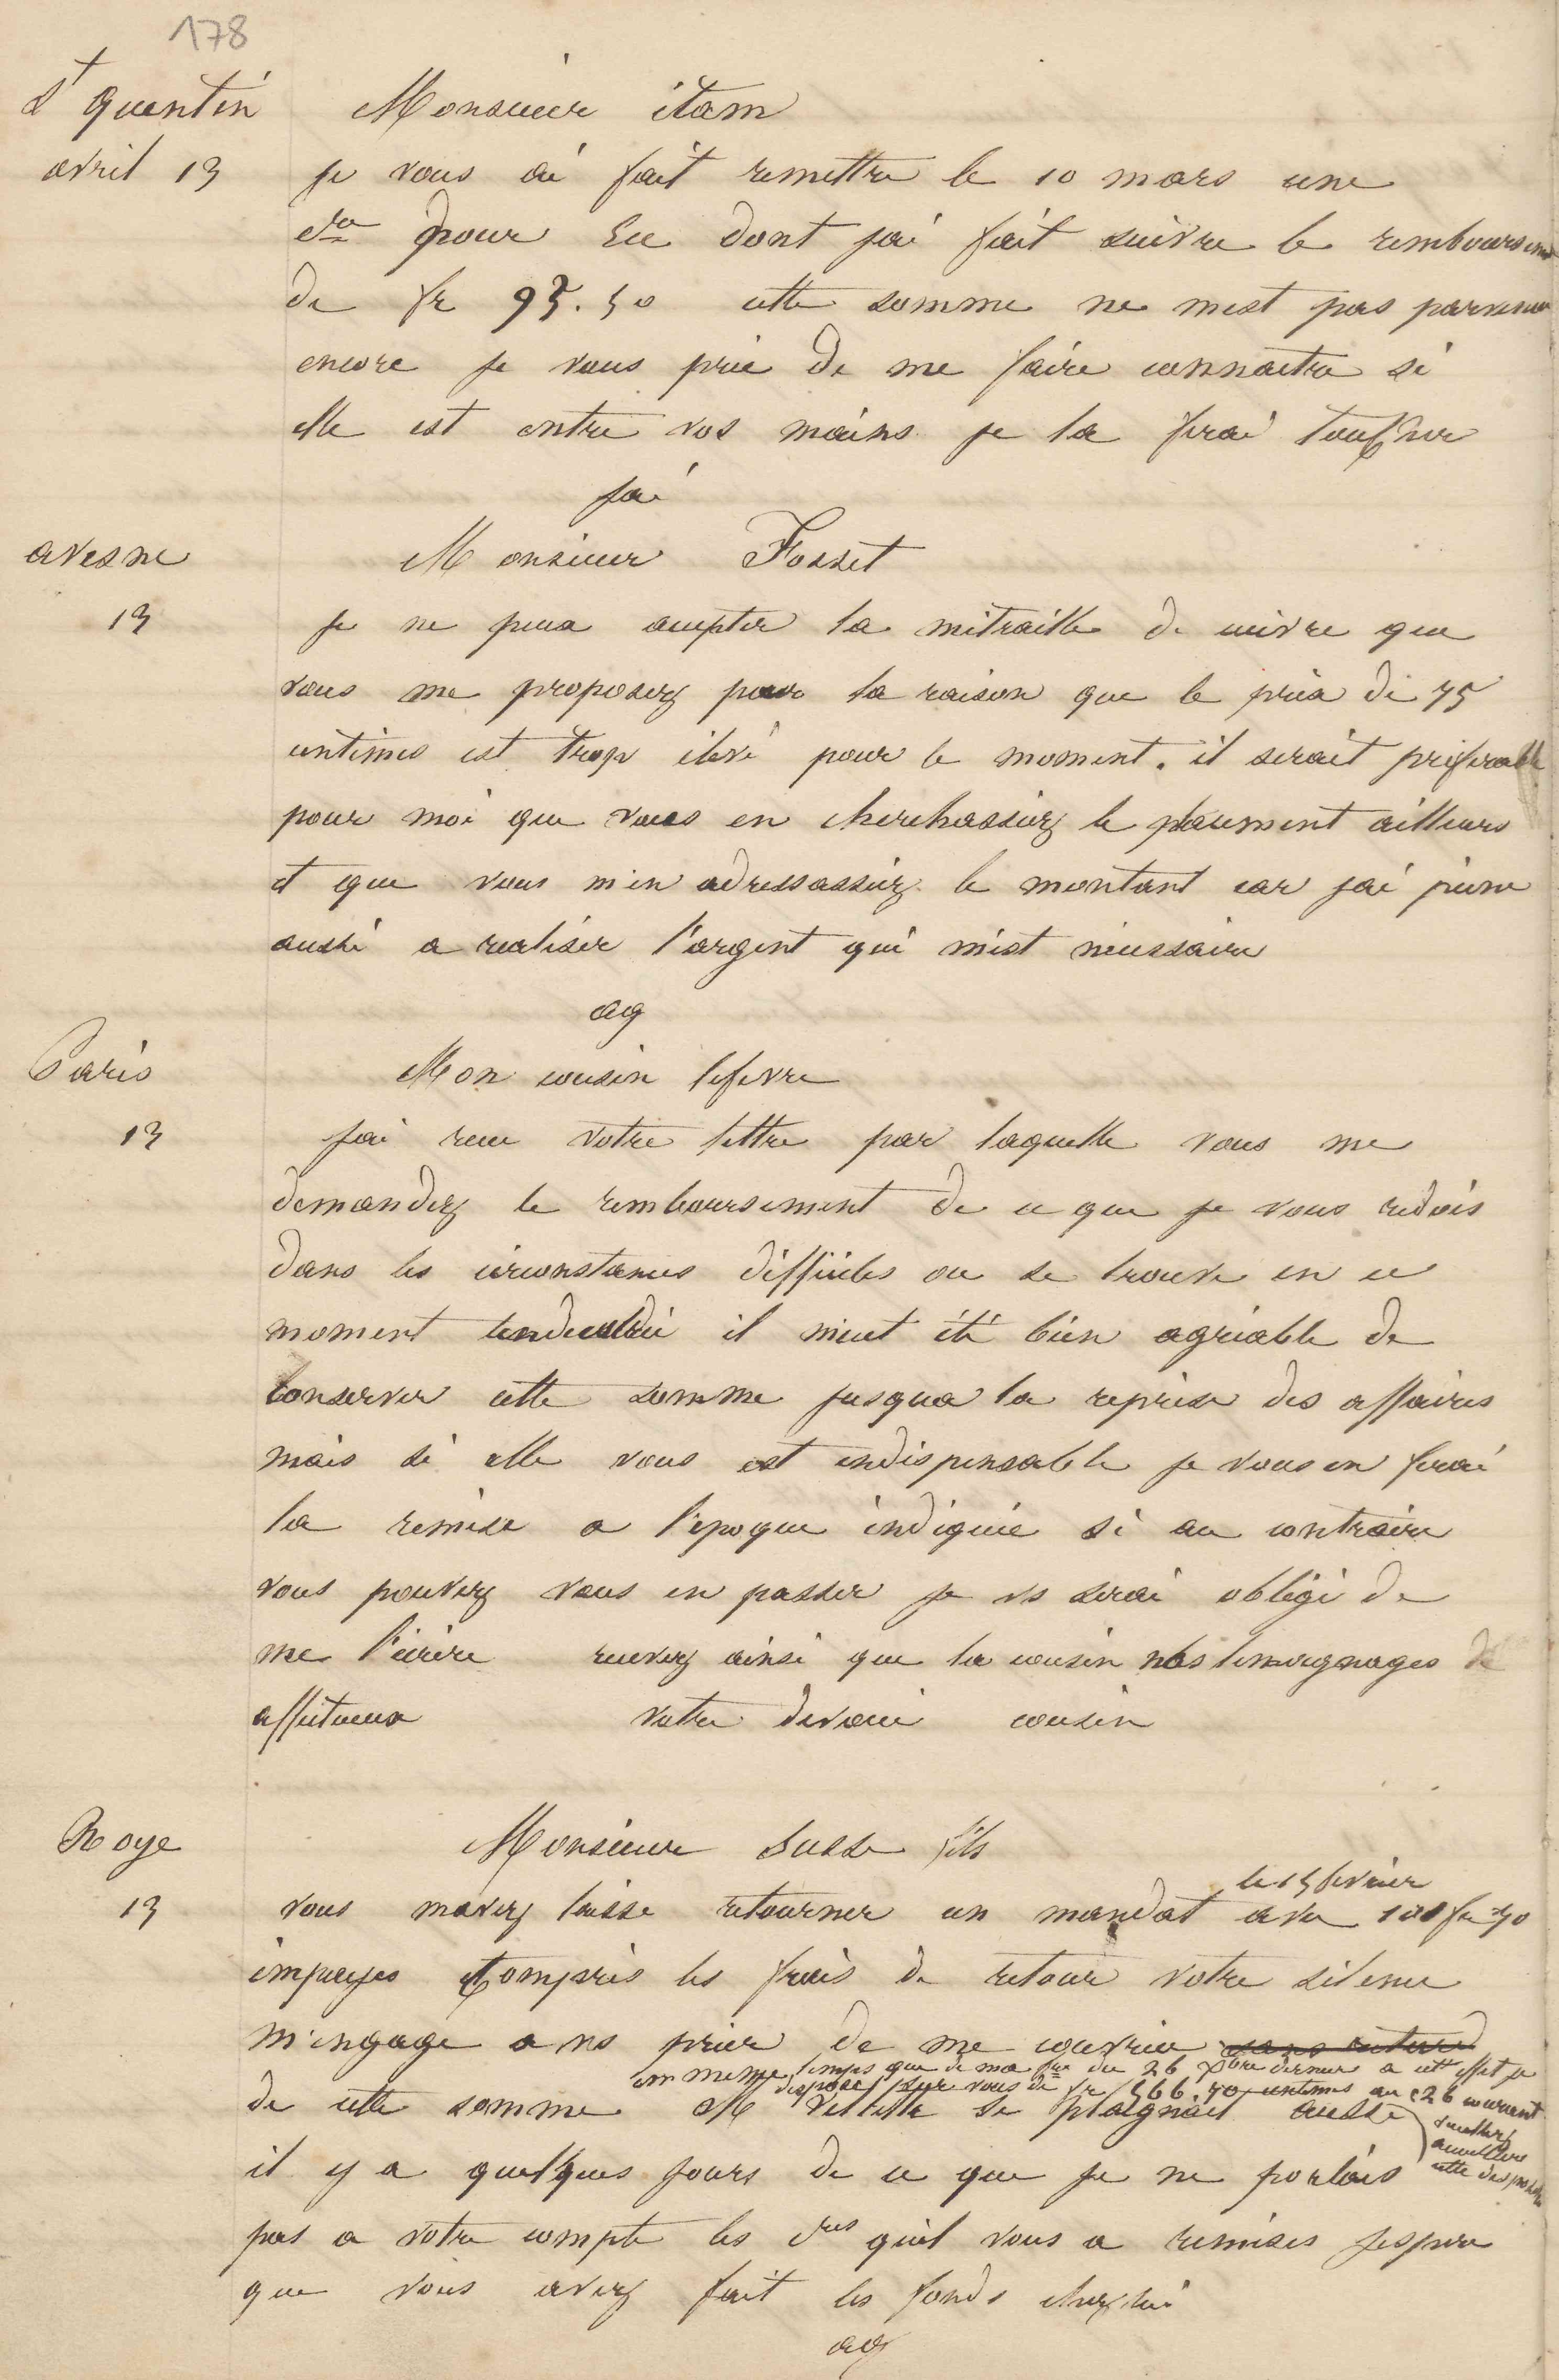 178
St quentin
avril 13
Monsieur itam
je vous ai fait remettre le 10 mars une
dont jai fait suivre le remboursem
de fr 95.50 cette somme ne mest pas parvenue
encore je vous prie de me faire connaitre si
elle est entre vos mains je la ferai toucher
jai
avesne
13
Monsieur Fosset
je ne peux accepter la mitraille de cuivre que
vous me proposez pour la raison que le prix de 75
centimes est trop élevé pour le moment. il serait préferable
pour moi que vous en cherchassiez le placement ailleurs
et que vous m'en adressassiez le montant car jai peine
aussi a realiser l'argent qui m'est nécessaire
ag
Paris
13
Mon cousin lefevre
jai recu votre lettre par laquelle vous me
demandez le remboursement de ce que je vous redois
dans les circonstances difficiles ou se trouve en ce
moment lindustrie il m'eut été bien agréable de
conserver cette somme jusqua la reprise des affaires
mais si elle vous est indispensable je vous en ferai
la remise a l'epoque indiquée si au contraire
vous pouvez vous en passer je vs serai obligé de
me l'écrire recevez ainsi que la cousin nos temoignages
affectueux votre dévoué cousin
Roye
13
Monsieur Susse fils
le 15 fevrier
vous mavez laisse retourner un mandat
impayes compris les frais de retour votre silence
m'engage a vs prier de me couvrir sans retard
en meme temps que de ma fre du 26 xbre dernier a cett effet je
dispose sur vous de fr 566.70 centimes au 26 courant
de cette somme M se plaignait aussi
veuillez
accueillire
cette disposition
il y a quelques jours de ce que je ne portais
pas a votre compte les qu'il vous a remises jespere
que vous avez fait les fonds chez lui
ag